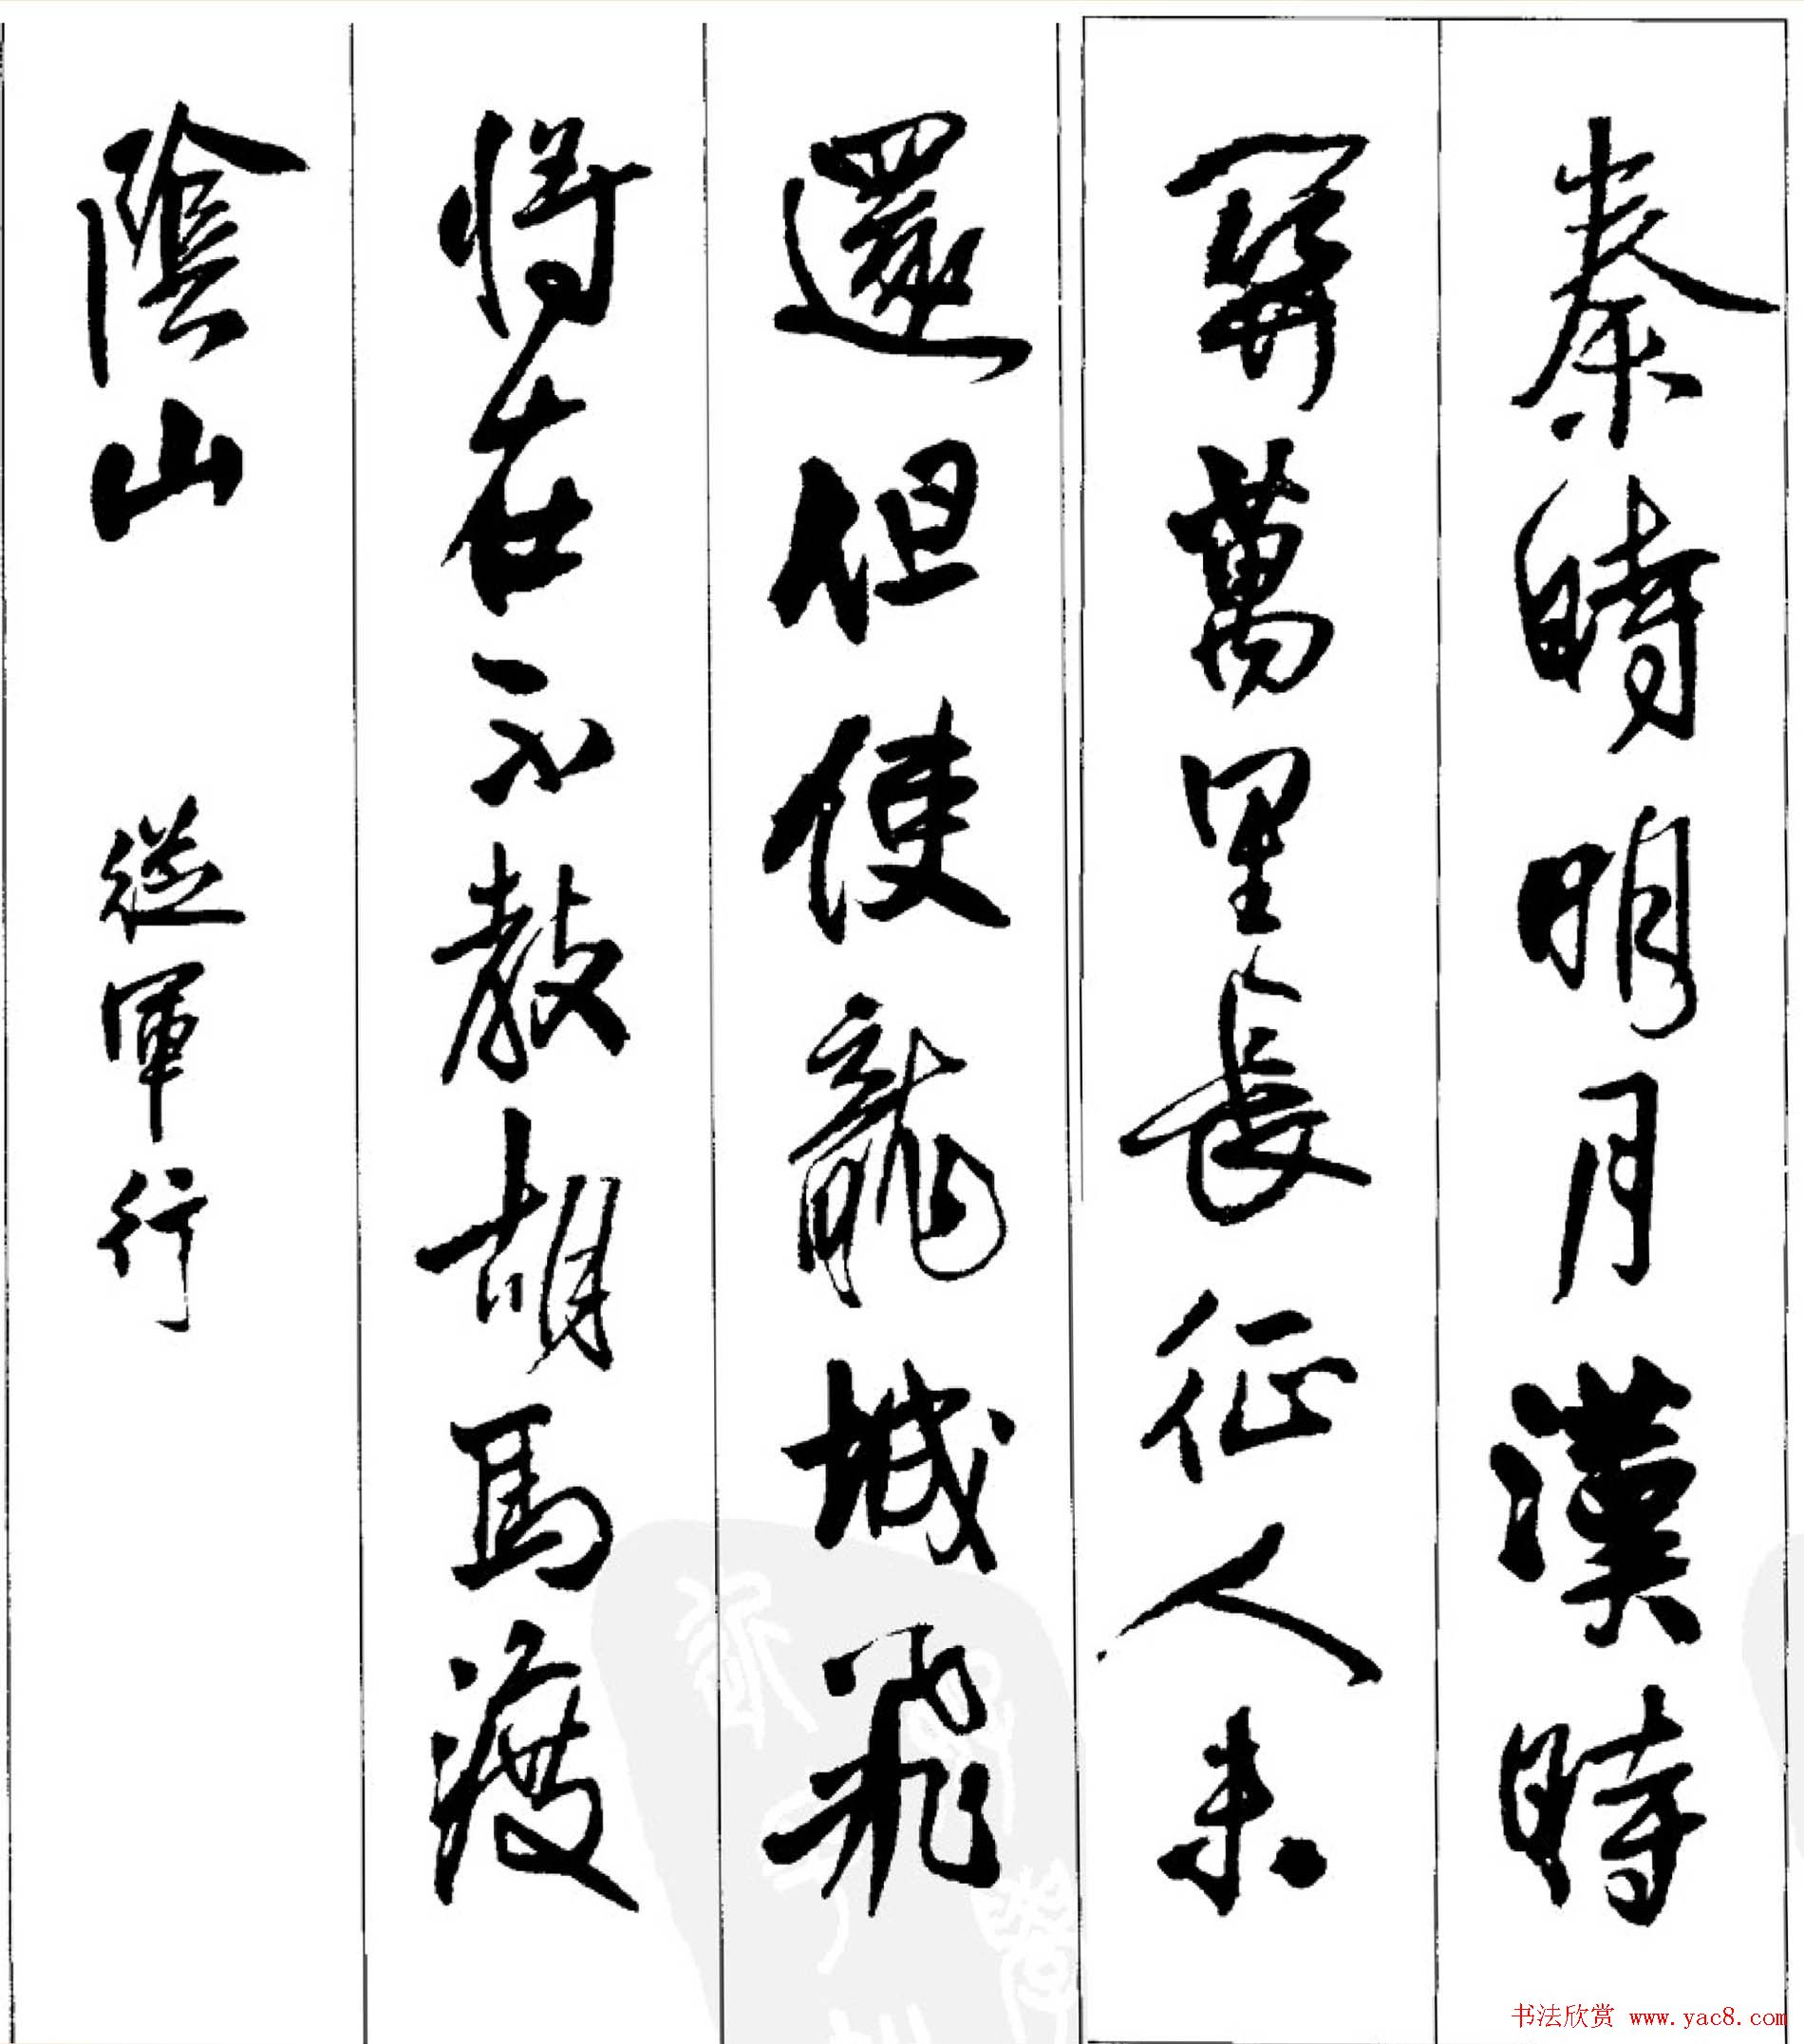 秦時明月漢時
關萬里長征人未
還但使龍城飛
將在不教胡馬渡
陰山 從軍行
书法欣赏 www.yac8.com